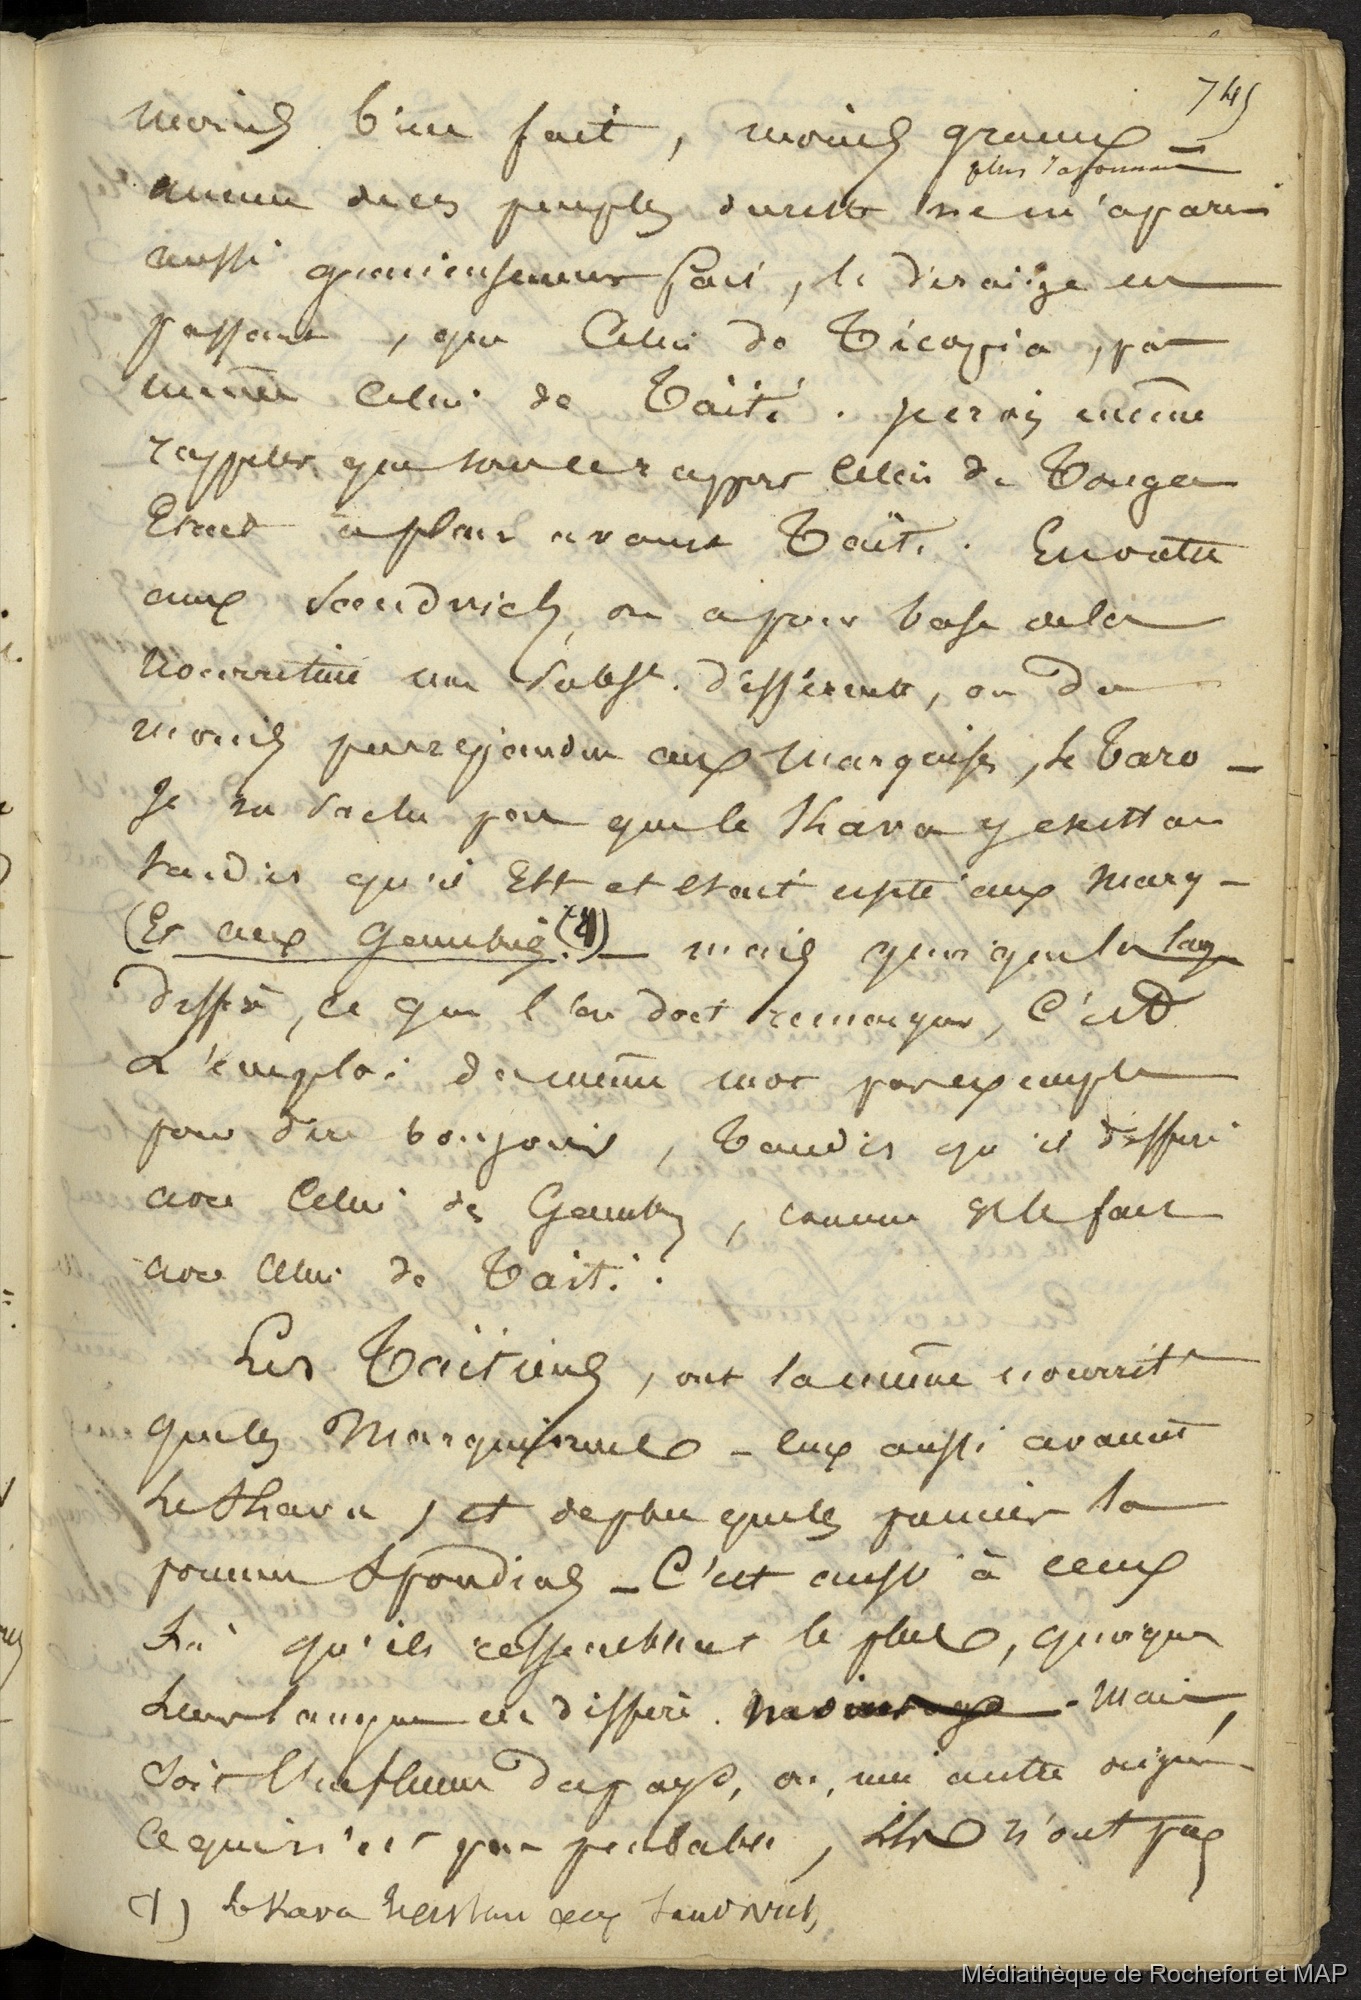 745
moins bien fait, moins gracieux
plus rayonnant
aucun de ces peuples du reste ne m'a paru
aussi gracieusement fait, le dirai-je en
passant, que celui de Ticopia, pas
même celui de Taïti. je crois même
rappeler que sous ce rapport celui de Tonga
était à placer avant Taïti. En outre
aux Sandwich, on a pour base de la
nourriture une subst. différente, ou du
moins peu répandue aux Marquises, le Taro _
Je ne sache pas que le Kava y existt
tandis qu'il Est et était usité aux Marq _
(Et aux Gambier (1)) _ mais quoique la lang
diffère, ce que l'on doit remarquer, C'est
L'emploi du même mot par exemple
pour dire bonjour, Tandis qu'il diffère
avec Celui des Gambier, comme il le fait
avec celui de Taïti.
Les Taïtiens, ont la même nourrit
que les Marquisiens _ eux aussi avaient
le Kava, et de plus qu'les premiers la
pomme Spondias _ C'est aussi à ceux
là qu'ils ressemblent le plus, quoique
Leur langue en diffère. Mais,
soit l'influence du pays, ou, une autre origine
Ce qui n'est pas probable, ils n'ont pas
(1) le Kava existe aux Sandwich,
Médiathèque de Rochefort et MAP